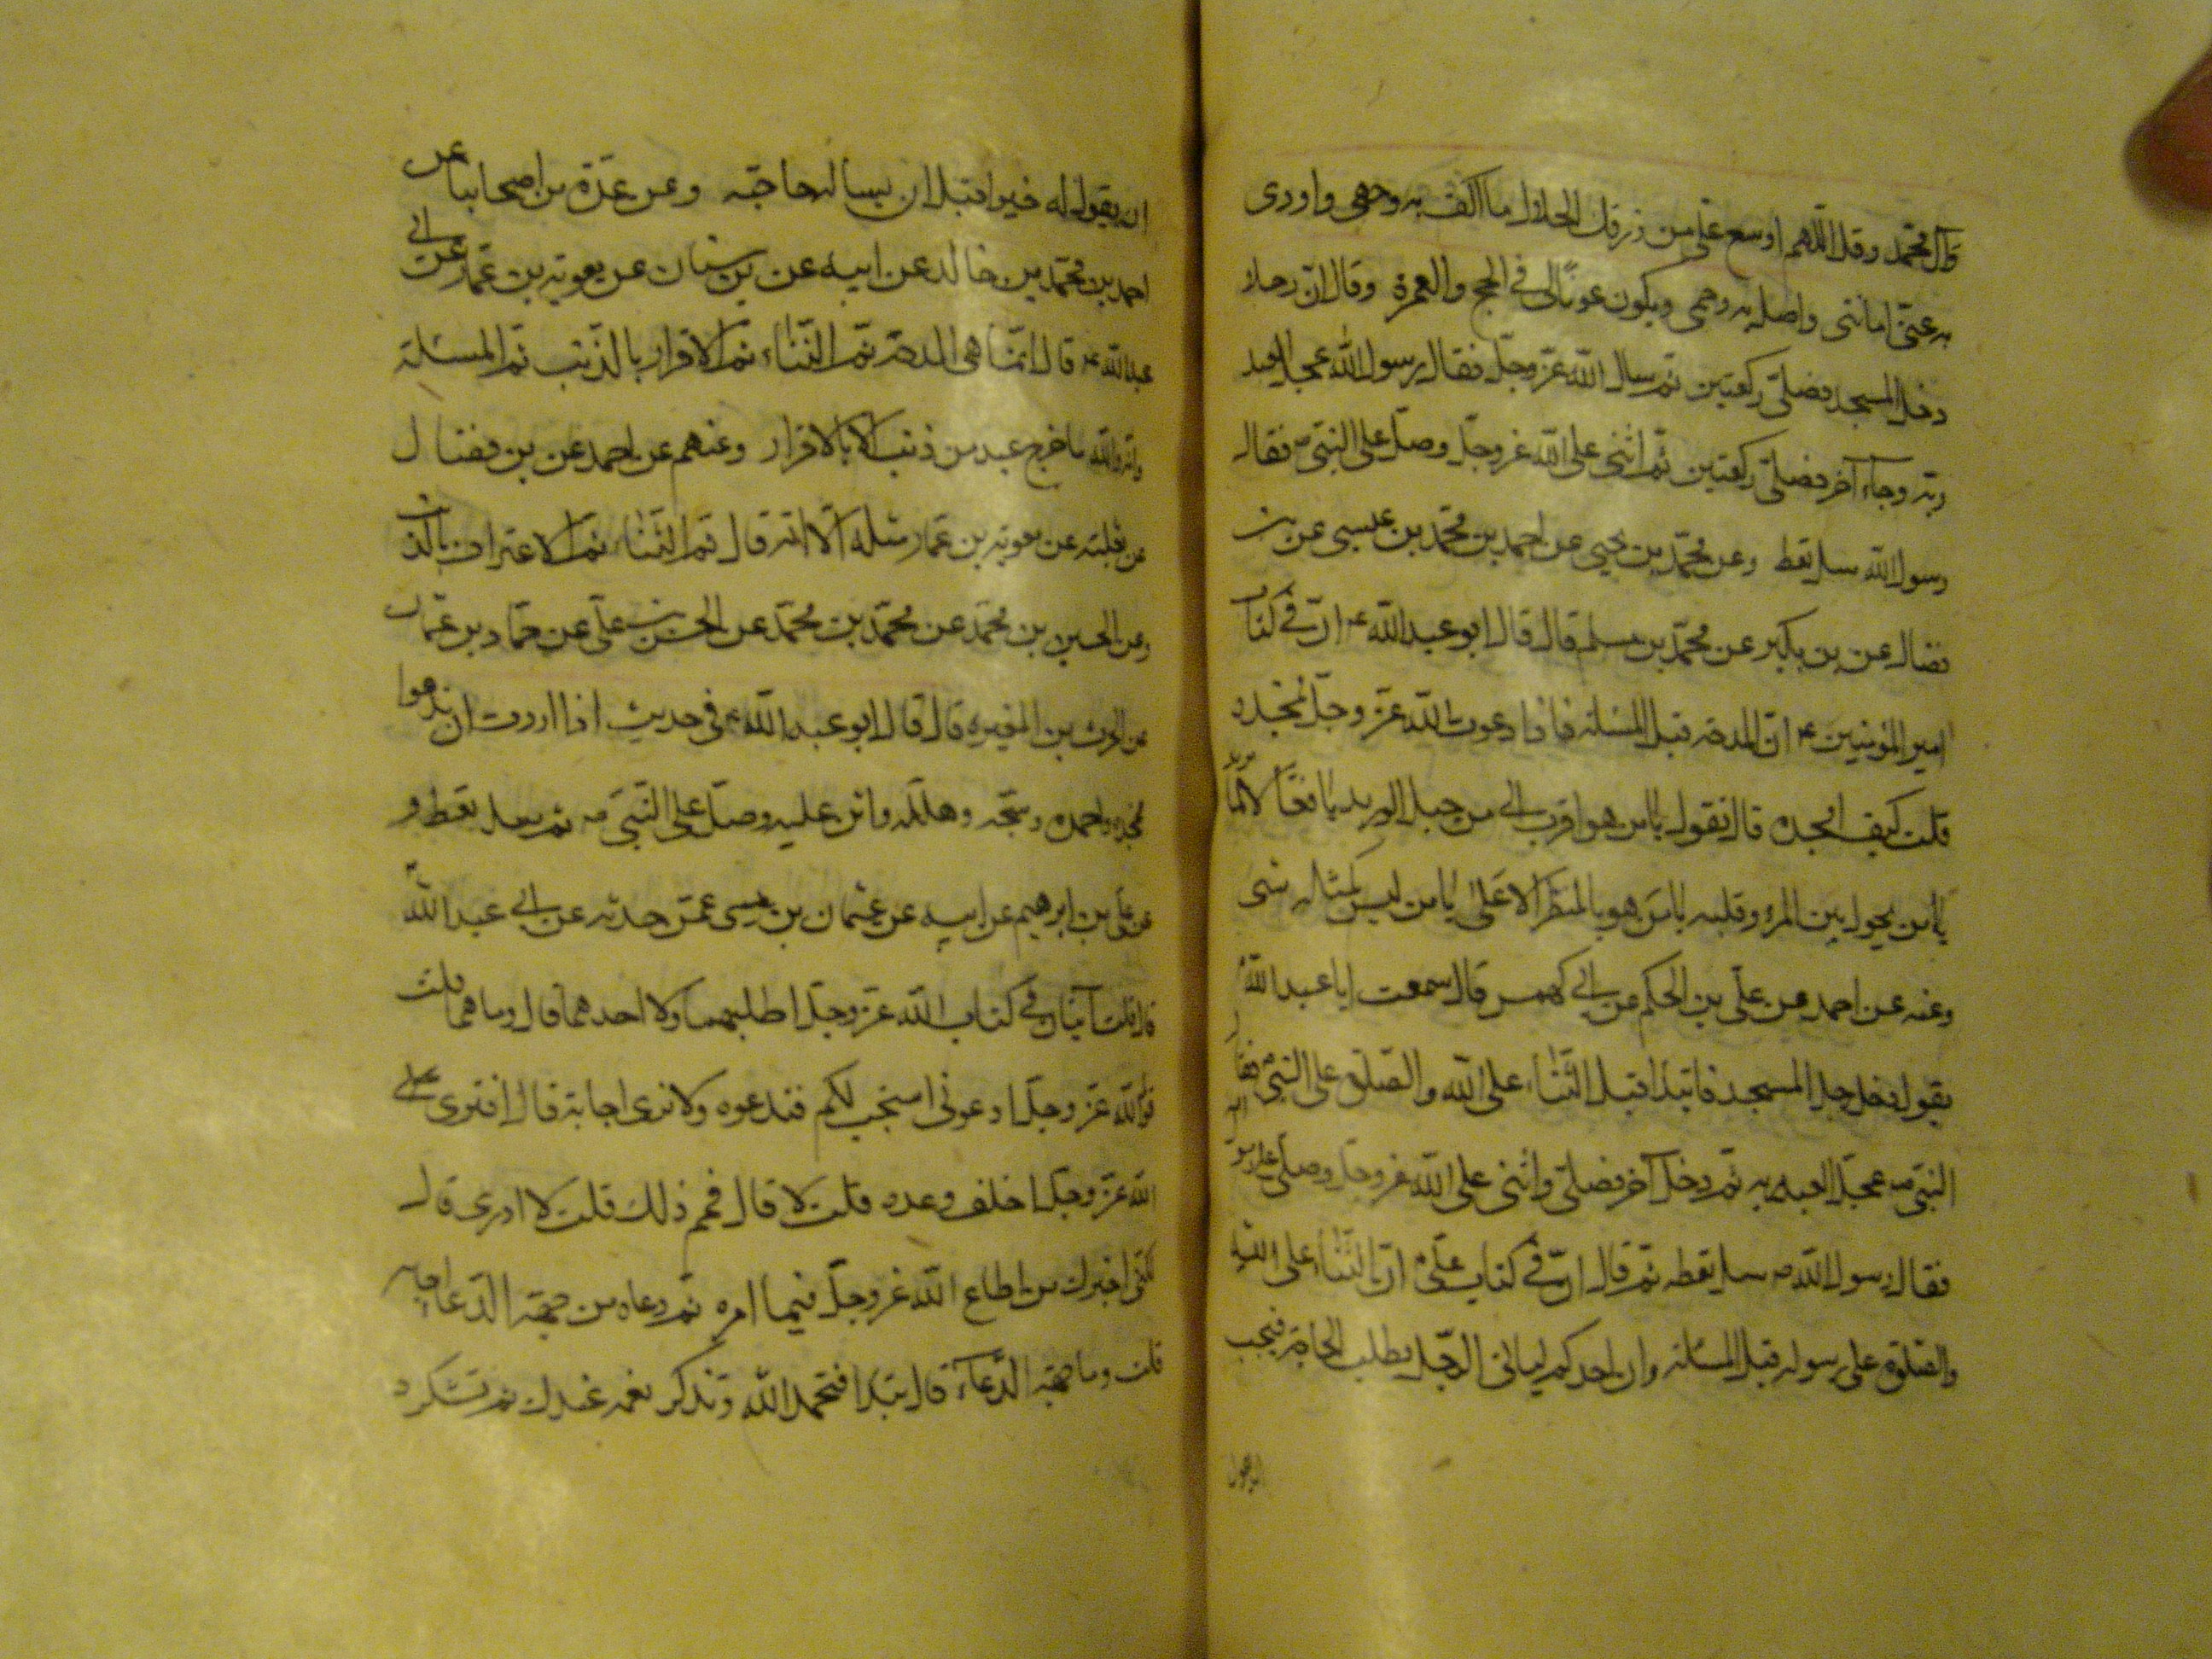 وآل محمد وقل اللهم اوسع علي من رزقك الحلال ما اكف به وجهي واودى
به عنى امانتى واصل به رحمى ويكون عونا لى في الحج والعمرة وقال ان رجلا
دخل المسجد فصلى ركعتين ثم سال الله عز وجل فقال رسول الله عجل العبد
ربه وجاء آخر فصلى ركعتين ثم اثنى على الله عز وجل وصلى على النبي ص فقال
رسول الله سل تعط وعن محمد بن يحيى عن احمد بن محمد بن عيسى عن بن
فضال عن بن بكير عن محمد بن مسلم قال قال ابو عبد الله ع ان في كتاب
امير المؤمنين ع ان المدحة قبل المسئلة فاذا دعوت الله عز وجل فمجده
قلت كيف امجده قال تقول يا من هو اقرب الي من حبل الوريد يا فعالا لما يريد
يا من يحول بين المرء وقلبه يا من هو بالمنظر الاعلى يا من ليس كمثله شى
وعنه عن احمد عن علي بن الحكم عن ابي كهمس قال سمعت ابا عبد الله ع
يقول دخل رجل المسجد فابتدا قبل الثناء على الله والصلوة على النبي ص فقال
النبي ص عجل العبد ربه ثم دخل آخر فصلى واثنى على الله عز وجل وصلى على رسول الله
فقال رسول الله ص سل تعطه ثم قال ان في كتاب علي ع ان الثناء على الله
والصلوة على رسوله قبل المسالة وان احدكم لياتى الرجل يطلب الحاجة فيحب
ان يقول له خيرا قبل ان يساله حاجته وعن عدة من اصحابنا عن
احمد بن محمد بن خالد عن ابيه عن بن سنان عن معوية بن عمار عن ابي
عبد الله ع قال انما هى المدحة ثم الثناء ثم الاقرار بالذنب ثم المسئلة
وانه والله ما خرج عبد من ذنب الا بالاقرار وعنهم عن احمد عن بن فضال
عن ثعلبة عن معوية بن عمار مثله الا انه قال ثم الثناء ثم الاعتراف بالذنب
وعن الحسين بن محمد عن معمد بن محمد عن الحسن بن علي عن حماد بن عثمان
عن الحرث بن المغيره قال قال ابو عبد الله ع في حديث اذا اردت ان تدعوا
فمجده واحمده وسبحه وهلله واثن عليه وصل على النبي ص ثم سل تعط و
عن علي بن ابرهيم عن ابيه عن عثمان بن عيسى عمن حدثه عن ابي عبد الله ع
قال قلت آيتان في كتاب الله عز وجل اطلبهما ولا احدهما قال وما هما قلت
قول الله عز وجل ادعونى استجب لكم فندعوه ولا نرى اجابة قال افترى
الله عز وجل اخلف وعده قلت لا قال فمم ذلك قلت لا ادرى قال
لكنى اخبرك من اطاع الله عز وجل فيما امره ثم دعاه من جهة الدعاء اجابه
قلت وما جهة الدعاء قال تبدا فتحمد الله وتذكر نعمه عندك ثم تشكره